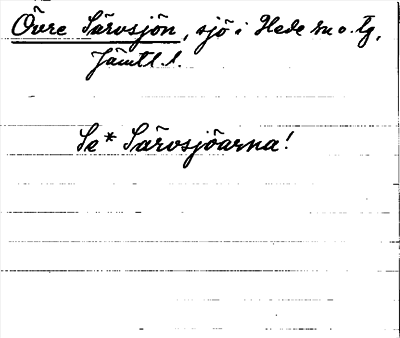 Övre Särvsjön, sjö i Hede sn o. tg,
Jämtl. l.
Se* Särvsjöarna!